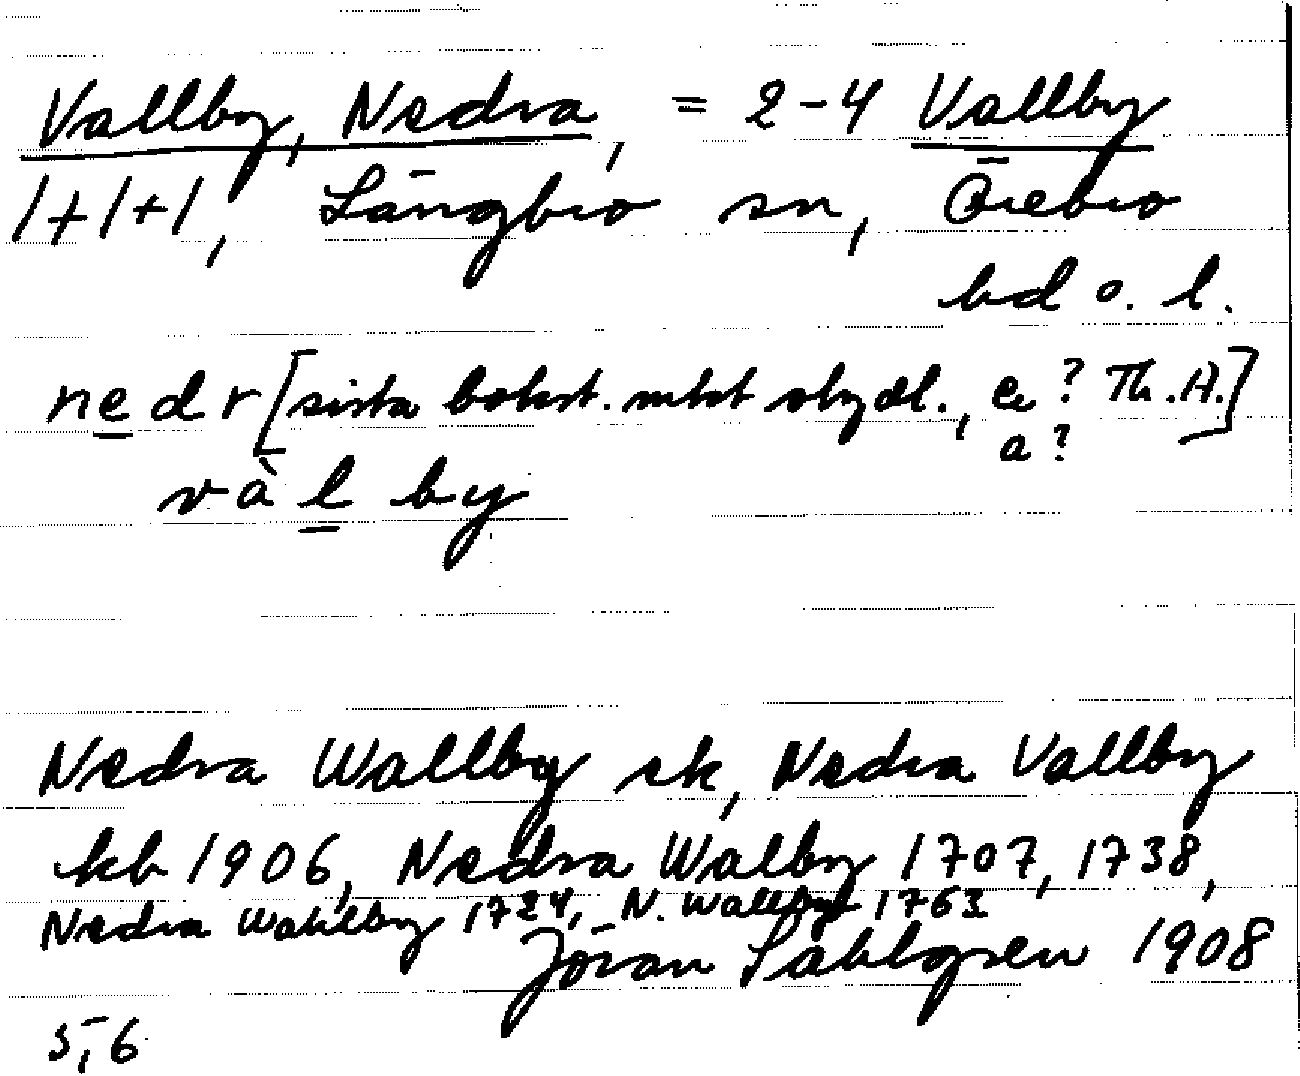 Vallby, Nedra, = 2-4 Vallby
1+1+1, Längbro sn, Örebro
hd o. l.
nedr [sista bokst. mkt otydl., e? Th.A.]
a?
vàl by
Nedra Wallby ek, Nedra Vallby
kb 1906, Nedra Walby 1707, 1738,
Nedra Wahlby 1724, N. Wallby 1763
Jöran Sahlgren 1908
5, 6